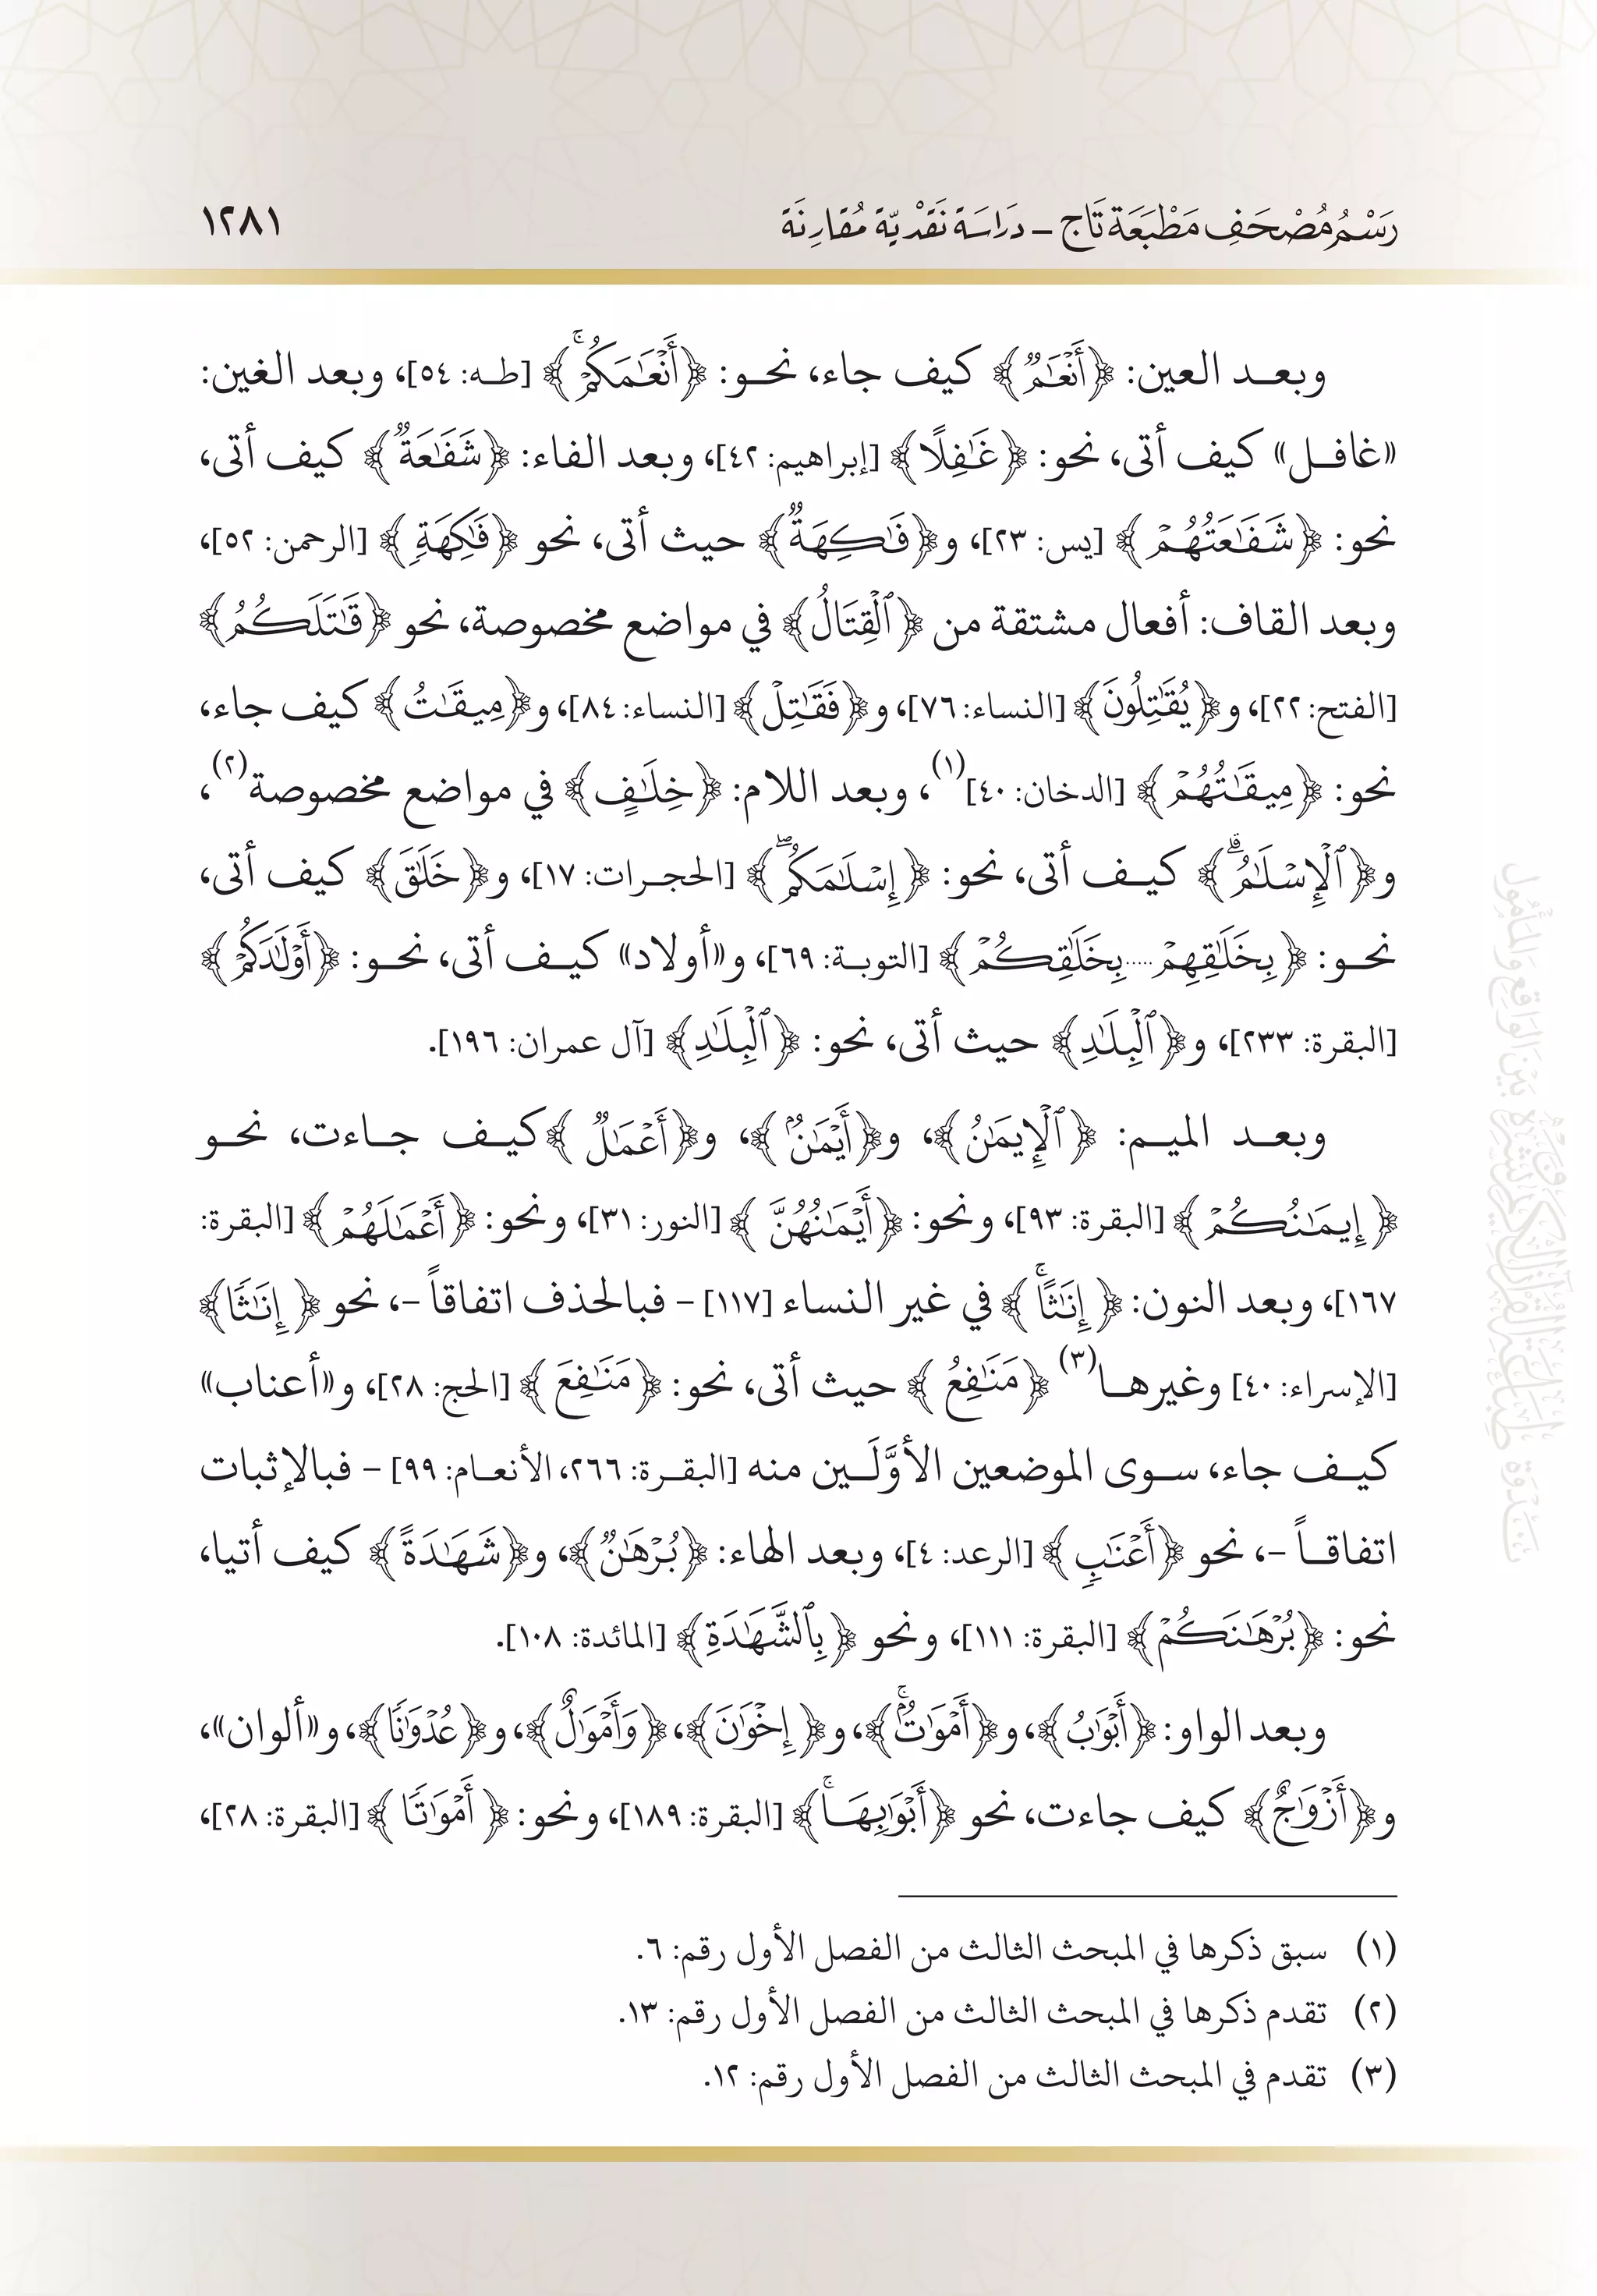 رَسْمُ مُصْحَفِ مَطْبَعَة تَاج - دَراسَة نَقْدِيَّة مُقَارِنَة
١٢٨١
وبعـد العين: ﴿أَنۡعَٰمٞ﴾ كيف جاء، نحـو: ﴿أَنۡعَٰمَكُمۡۚ﴾ [طـه: ٥٤]، وبعد الغين:
«غافـل» كيف أتى، نحو: ﴿غَٰفِلًا﴾ [إبراهيم: ٤٢]، وبعد الفاء: ﴿شَفَٰعَةٞ﴾ كيف أتى،
نحو: ﴿شَفَٰعَتُهُمۡ﴾ [يس: ٢٣]، و﴿فَٰكِهَةٞ﴾ حيث أتى، نحو ﴿فَٰكِهَةٖ﴾ [الرحمن: ٥٢]،
وبعد القاف: أفعال مشتقة من ﴿ٱلۡقِتَالُ﴾ في مواضع مخصوصة، نحو ﴿قَٰتَلَكُمُ﴾
[الفتح: ٢٢]، و﴿يُقَٰتِلُونَ﴾ [النساء: ٧٦]، و﴿فَقَٰتِلۡ﴾ [النساء: ٨٤]، و﴿مِيقَٰتُ﴾ كيف جاء،
نحو: ﴿مِيقَٰتُهُمۡ﴾ [الدخان: ٤٠](١)، وبعد اللام: ﴿خِلَٰفٍ﴾ في مواضع مخصوصة(٢)،
و﴿ٱلۡإِسۡلَٰمُۗ﴾ كيـف أتى، نحو: ﴿إِسۡلَٰمَكُمۖ﴾ [الحجـرات: ١٧]، و﴿خَلَٰقَ﴾ كيف أتى،
نحـو: ﴿بِخَلَٰقِهِمۡ.....بِخَلَٰقِكُمۡ﴾ [التوبـة: ٦٩]، و«أولاد» كيـف أتى، نحـو: ﴿أَوۡلَٰدَكُمۡ﴾
[البقرة: ٢٣٣]، و﴿ٱلۡبِلَٰدِ﴾ حيث أتى، نحو: ﴿ٱلۡبِلَٰدِ﴾ [آل عمران: ١٩٦].
وبعـد الميـم: ﴿ٱلۡإِيمَٰنُ﴾، و﴿أَيۡمَٰنُۢ﴾، و﴿أَعۡمَٰلٞ﴾كيـف جـاءت، نحـو
﴿إِيمَٰنُكُمۡ﴾ [البقرة: ٩٣]، ونحو: ﴿أَيۡمَٰنُهُنَّ﴾ [النور: ٣١]، ونحو: ﴿أَعۡمَٰلَهُمۡ﴾ [البقرة:
١٦٧]، وبعد النون: ﴿إِنَٰثًاۚ﴾ في غير النساء [١١٧] - فبالحذف اتفاقاً -، نحو ﴿إِنَٰثًا﴾
[الإسراء: ٤٠] وغيرهـا(٣) ﴿مَنَٰفِعُ﴾ حيث أتى، نحو: ﴿مَنَٰفِعَ﴾ [الحج: ٢٨]، و«أعناب»
كيـف جاء، سـوى الموضعين الأوَّلَـين منه [البقـرة: ٢٦٦، الأنعـام: ٩٩] - فبالإثبات
اتفاقـاً -، نحو ﴿أَعۡنَٰبٖ﴾ [الرعد: ٤]، وبعد الهاء: ﴿بُرۡهَٰنٞ﴾، و﴿شَهَٰدَةً﴾ كيف أتيا،
نحو: ﴿بُرۡهَٰنَكُمۡ﴾ [البقرة: ١١١]، ونحو ﴿بِٱلشَّهَٰدَةِ﴾ [المائدة: ١٠٨].
وبعد الواو: ﴿أَبۡوَٰبُ﴾، و﴿أَمۡوَٰتُۢۚ﴾، و﴿إِخۡوَٰنَ﴾، ﴿وَأَمۡوَٰلٌ﴾، و﴿عُدۡوَٰنَا﴾، و«ألوان»،
و﴿أَزۡوَٰجٌ﴾ كيف جاءت، نحو ﴿أَبۡوَٰبِهَاۚ﴾ [البقرة: ١٨٩]، ونحو: ﴿أَمۡوَٰتًا﴾ [البقرة: ٢٨]،
(١) سبق ذكرها في المبحث الثالث من الفصل الأول رقم: ٦.
(٢) تقدم ذكرها في المبحث الثالث من الفصل الأول رقم: ١٣.
(٣) تقدم في المبحث الثالث من الفصل الأول رقم: ١٢.